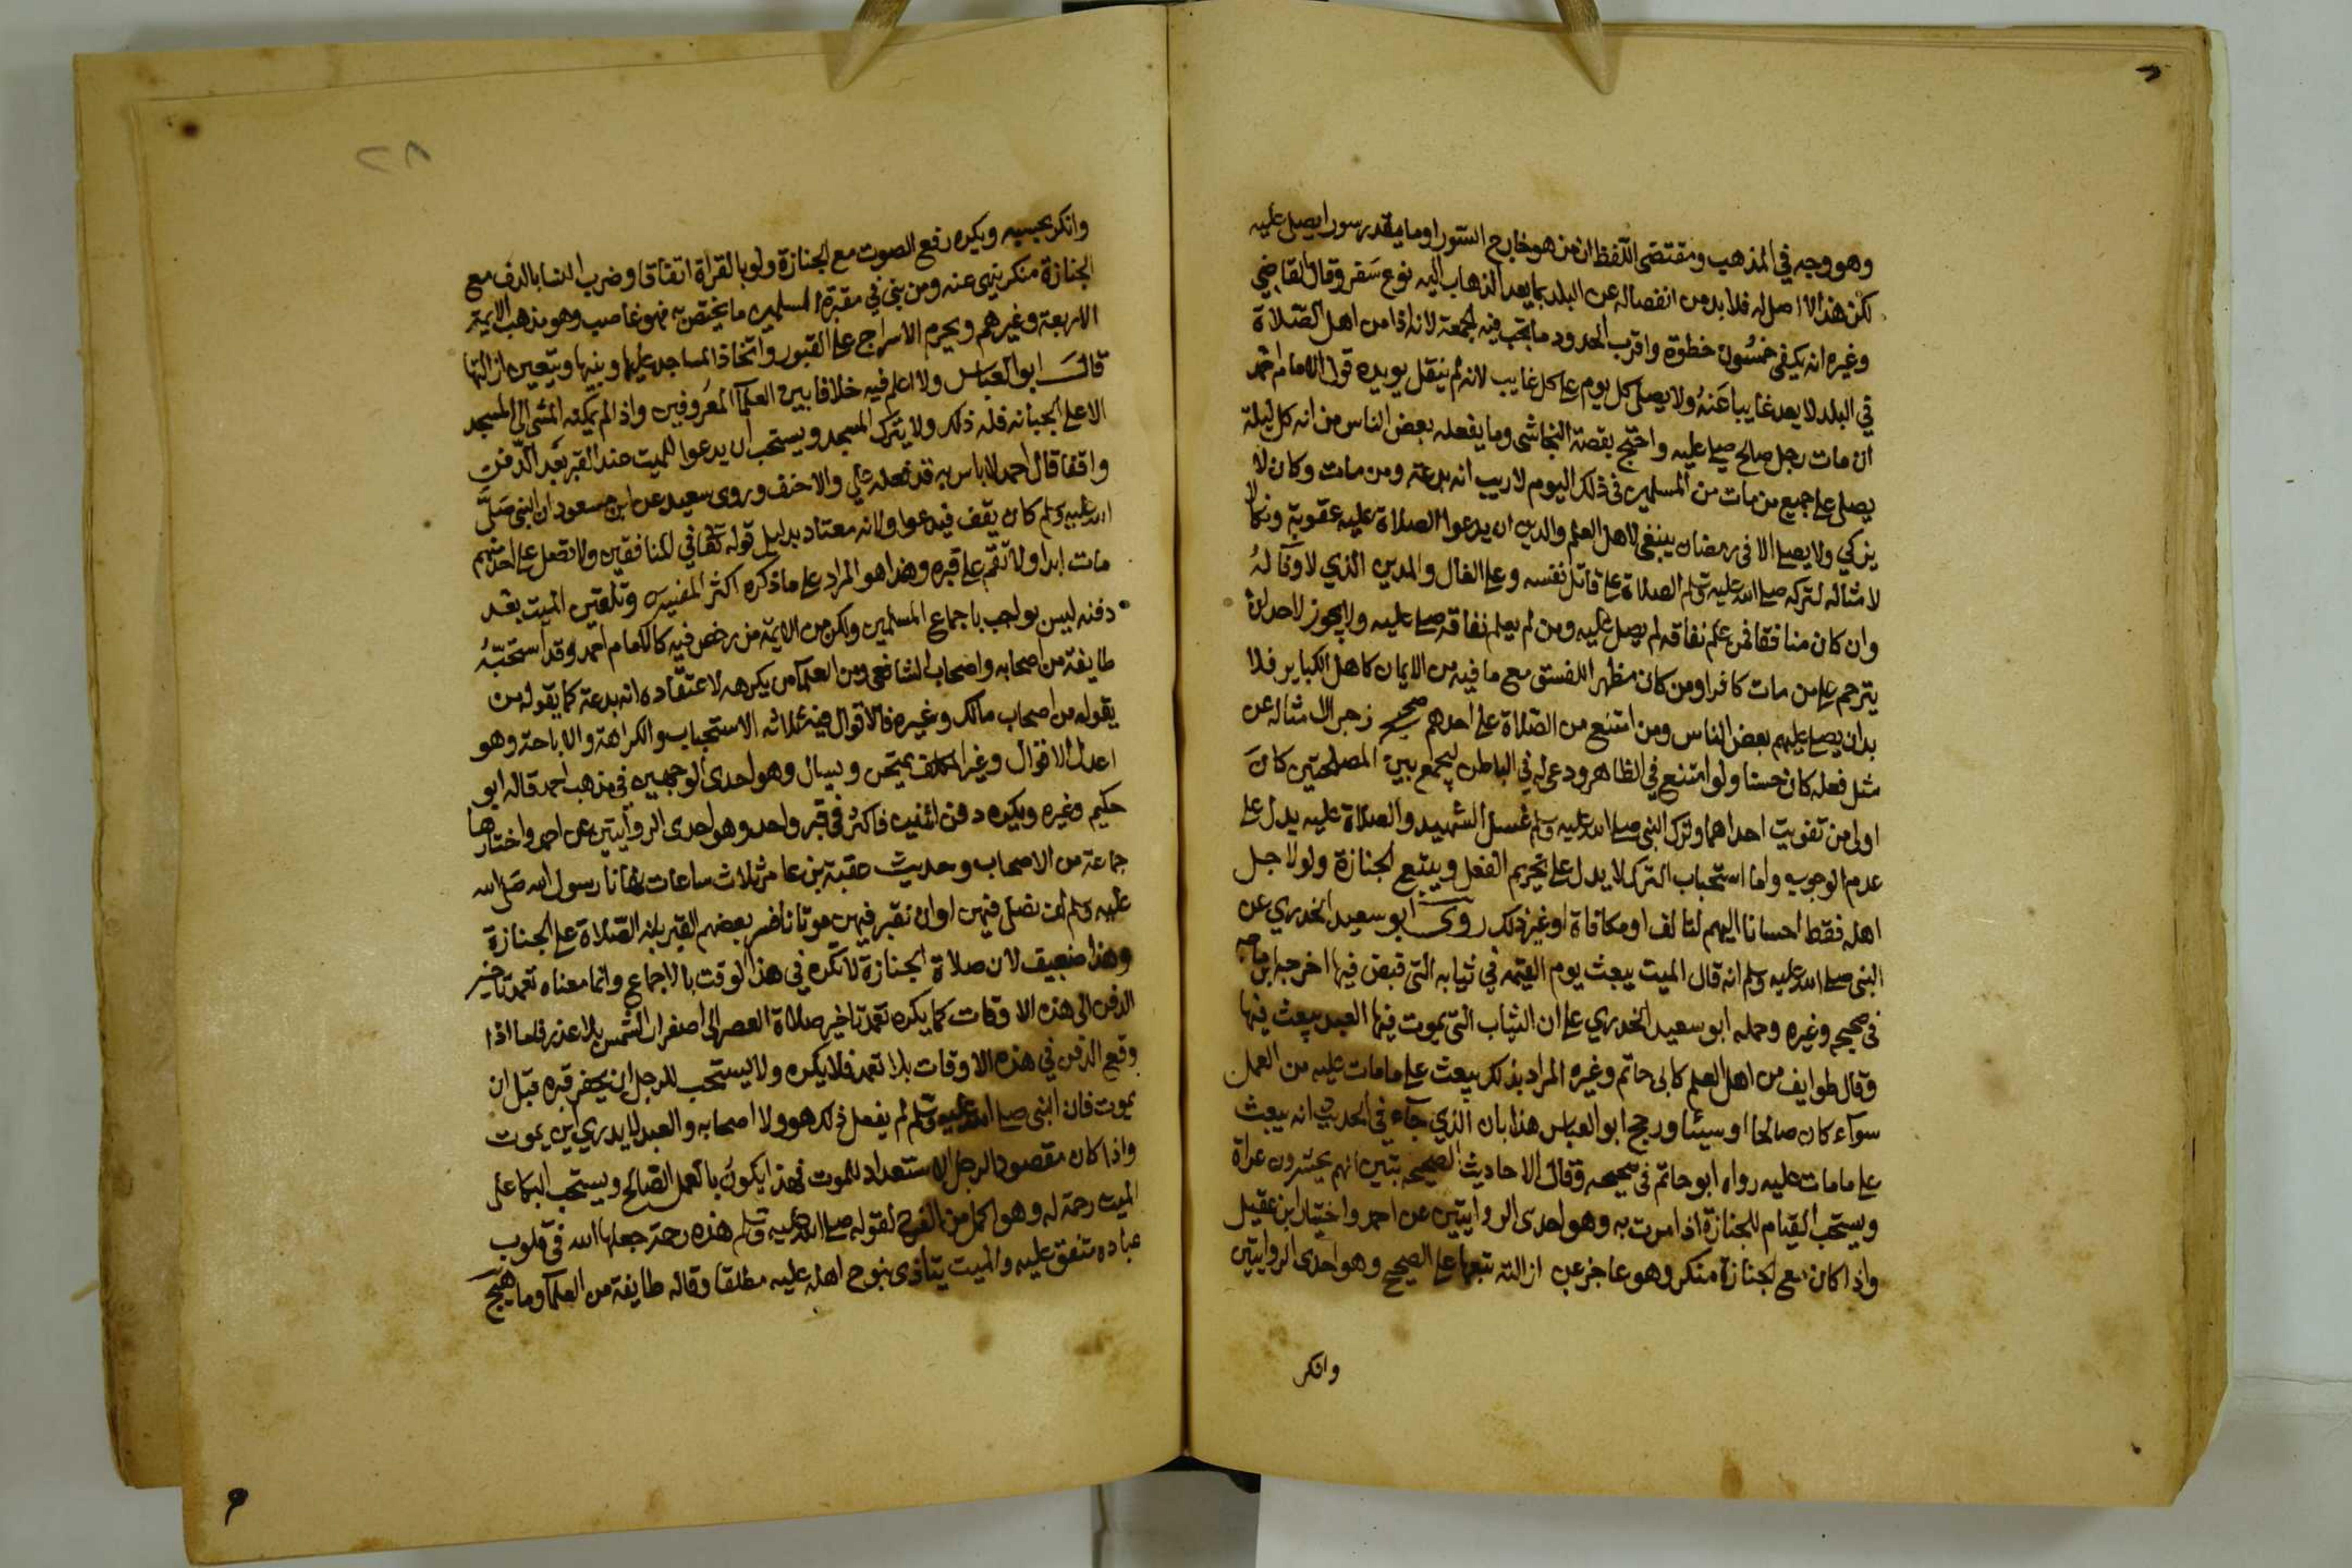 وهو وجه في المذهب ومقتضى اللفظ ان من هو خارج السور او ما يقدر سورا يصلى عليه
لكن هذا لا اصل له فلا بد من انفصاله عن البلد بما يعد الذهاب اليه نوع سفر وقال القاضي
وغيره انه يكفي خمسون خطوة واقرب الحدود ما تجب فيه الجمعة لانه اذا من اهل الصلاة
في البلد لا يعد غايبا عنه ولا يصلى كل يوم على كل غايب لانه لم ينقل يويده قول الامام احمد
ان مات رجل صالح صلي عليه واحتج بقصة النجاشي وما يفعله بعض الناس من انه كل ليلة
يصلي على جميع من مات من المسلمين في ذلك اليوم لا ريب انه بدعة ومن مات وكان لا
يزكي ولا يصلي الا في رمضان ينبغي لاهل العلم والدين ان يدعوا الصلاة عليه عقوبة ونكالا
لامثاله لتركه صلى الله عليه وسلم الصلاة على قاتل نفسه وعلى الغال والمدين الذي لا وفاء له
وان كان منافقا فمن علم نفاقه لم يصل عليه ومن لم يعلم نفاقه صلى عليه ولا يجوز لاحد ان
يترحم على من مات كافرا ومن كان مظهرا للفسق مع ما فيه من الايمان كاهل الكباير فلا
بد ان يصلي عليهم بعض الناس ومن امتنع من الصلاة على احدهم صحيح زجرا لامثاله عن
مثل فعله كان حسنا ولو امتنع في الظاهر ودعى له في الباطن ليجمع بين المصلحتين كان
اولى من تفويت احداهما وترك النبي صلى الله عليه وسلم غسل الشهيد والصلاة عليه يدل على
عدم الوجوب واما استحباب الترك لا يدل على تحريم الفعل ويتبع الجنازة ولو لاجل
اهله فقط احسانا اليهم لتالف او مكافاة او غير ذلك روى ابو سعيد الخدري عن
النبي صلى الله عليه وسلم انه قال الميت يبعث يوم القيمه في ثيابه التي قبض فيها اخرجه ابن حاتم
في صحيحه وغيره وحمله ابو سعيد الخدري على ان الثياب التي يموت فيها العبد يبعث فيها
وقال طوايف من اهل العلم كابي حاتم وغيره المراد بذلك يبعث على ما مات عليه من العمل
سوآء كان صالحا او سيئا ورجح ابو العباس هذا بان الذي جآء في الحديث انه يبعث
على ما مات عليه رواه ابو حاتم في صحيحه وقال الاحاديث الصحيحه تبين انهم يحشرون عراة
ويستحب القيام للجنازة اذا مرت به وهو احدى الروايتين عن احمد واختيار ابن عقيل
واذا كان مع الجنازة منكر وهو عاجز عن ازالته تبعها على الصحيح وهو احدى الروايتين
وانكر
٢٨
وانكر بحسبه ويكره رفع الصوت مع الجنازة ولو بالقراة اتفاقا وضرب النسا بالدف مع
الجنازة منكر ينهى عنه ومن بنى في مقبرة المسلمين ما يختص به فهو غاصب وهو مذهب الايمة
الاربعة وغيرهم ويحرم الاسراج على القبور واتخاذ المساجد عليها وبينها ويتعين ازالتها
قال ابو العباس ولا اعلم فيه خلافا بين العلمآ المعروفين واذا لم يمكنه المشي الى المسجد
الا على الجبانه فله ذلك ولا يترك المسجد ويستحب ان يدعوا للميت عند القبر بعد الدفن
واقفا قال احمد لا باس به قد فعله علي والاحنف وروى سعيد عن ابن مسعود ان النبي صلى
الله عليه وسلم كان يقف فيدعوا ولانه معتاد بدليل قوله تعالى في المنافقين ولا تصل على احد منهم
مات ابدا ولا تقم على قبره وهذا هو المراد على ما ذكره اكثر المفسرين وتلقين الميت بعد
دفنه ليس بواجب باجماع المسلمين ولكن من الايمة من رخص فيه كالامام احمد وقد استحبه
طايفة من اصحابه واصحاب الشافعي ومن العلمآ من يكرهه لاعتقاده انه بدعة كما يقوله من
يقوله من اصحاب مالك وغيره فالاقوال فيه ثلاثه الاستحباب والكراهة والاباحة وهو
اعدل الاقوال وغير المكلف يمتحن ويسال وهو احدى الوجهين في مذهب احمد قاله ابو
حكيم وغيره ويكره دفن اثنين فاكثر في قبر واحد وهو احدى الروايتين عن احمد واختارها
جماعة من الاصحاب وحديث عقبة بن عامر ثلاث ساعات نهانا رسول الله صلى الله
عليه وسلم ان نصلي فيهن او ان نقبر فيهن موتانا فسر بعضهم القبر بانه الصلاة على الجنازة
وهذا ضعيف لان صلاة الجنازة لا تكره في هذا الوقت بالاجماع وانما معناه تعمد تاخير
الدفن الى هذه الاوقات كما يكره تعمد تاخير صلاة العصر الى اصفرار الشمس بلا عذر فاما اذا
وقع الدفن في هذه الاوقات بلا تعمد فلا يكره ولا يستحب للرجل ان يحفر قبره قبل ان
يموت فان النبي صلى الله عليه وسلم لم يفعل ذلك هو ولا اصحابه والعبد لا يدري اين يموت
واذا كان مقصود الرجل الاستعداد للموت فهذا يكون بالعمل الصالح ويستحب البكا على
الميت رحمة له وهو اكمل من الفرح لقوله صلى الله عليه وسلم هذه رحمة جعلها الله في قلوب
عباده متفق عليه والميت يتاذى بنوح اهله عليه مطلقا وقاله طايفة من العلمآ وما يهيج